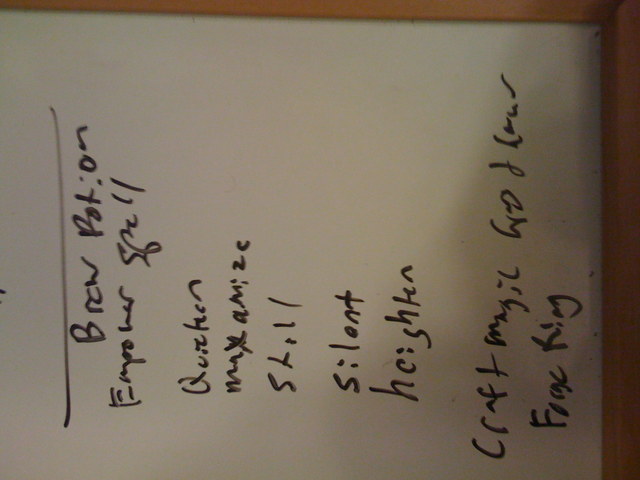 Brew Potion
Empower Spell
Quicken
maxamize
Still
Silent
heighten
Craft magic
Forge Ring